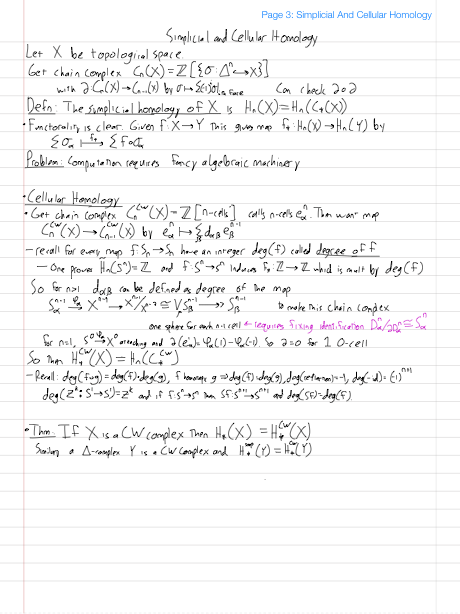 Page 3: Simplicial And Cellular Homology
Simplicial and Cellular Homology
Let X be topological space.
Get chain complex Cₙ(X) = ℤ[{σ: Δⁿ ↪ X}]
with ∂: Cₙ(X) → Cₙ₋₁(X) by σ ↦ Σ(-1)ⁱσ|ᵢₜₕ face Can check ∂∘∂
Defn: The simplicial homology of X is Hₙ(X) = Hₙ(C₊(X))
• Functoriality is clear. Given f: X → Y This gives map f₊: Hₙ(X) → Hₙ(Y) by
Σσα ↦ Σ f∘σα
Problem: Computation requires fancy algebraic machinery
• Cellular Homology
• Get chain complex Cₙᶜᵂ(X) = ℤ[n-cells] calls n-cells eαⁿ. Then want map
Cₙᶜᵂ(X) → Cₙ₋₁ᶜᵂ(X) by eαⁿ ↦ Σ dαβ eβⁿ⁻¹
– recall for every map f: Sₙ → Sₙ have an integer deg(f) called degree of f
– One proves Hₙ(Sⁿ) = ℤ and f: Sⁿ → Sⁿ induces fₙ: ℤ → ℤ which is mult by deg(f)
So for n>1 dαβ can be defined as degree of the map
Sαⁿ⁻¹ →φα Xⁿ⁻¹ → Xⁿ⁻¹/Xⁿ⁻² ≅ ⋁Sβⁿ⁻¹ → Sβⁿ⁻¹ to make this chain complex
one sphere for each n-1 cell ← requires fixing identification Dαⁿ/∂Dαⁿ ≅ Sαⁿ
for n=1, S⁰ →φα X⁰ attaching and ∂(eαⁿ) = φα(1) - φα(-1). So ∂=0 for 1 0-cell
So then Hₙᶜᵂ(X) = Hₙ(C₊ᶜᵂ)
– Recall: deg(f∘g) = deg(f)·deg(g), f homotopic g ⇒ deg(f)=deg(g), deg(reflection)=-1, deg(-id) = (-1)ⁿ⁺¹
deg(zᵏ: S¹ → S¹) = zᵏ and if f: Sⁿ → Sⁿ then Sf: Sⁿ⁺¹ → Sⁿ⁺¹ and deg(Sf) = deg(f)
• Thm: If X is a CW complex then Hₙ(X) = H₊ᶜᵂ(X)
Similarly a Δ-complex Y is a CW complex and (Y) = H₊ᶜᵂ(Y)